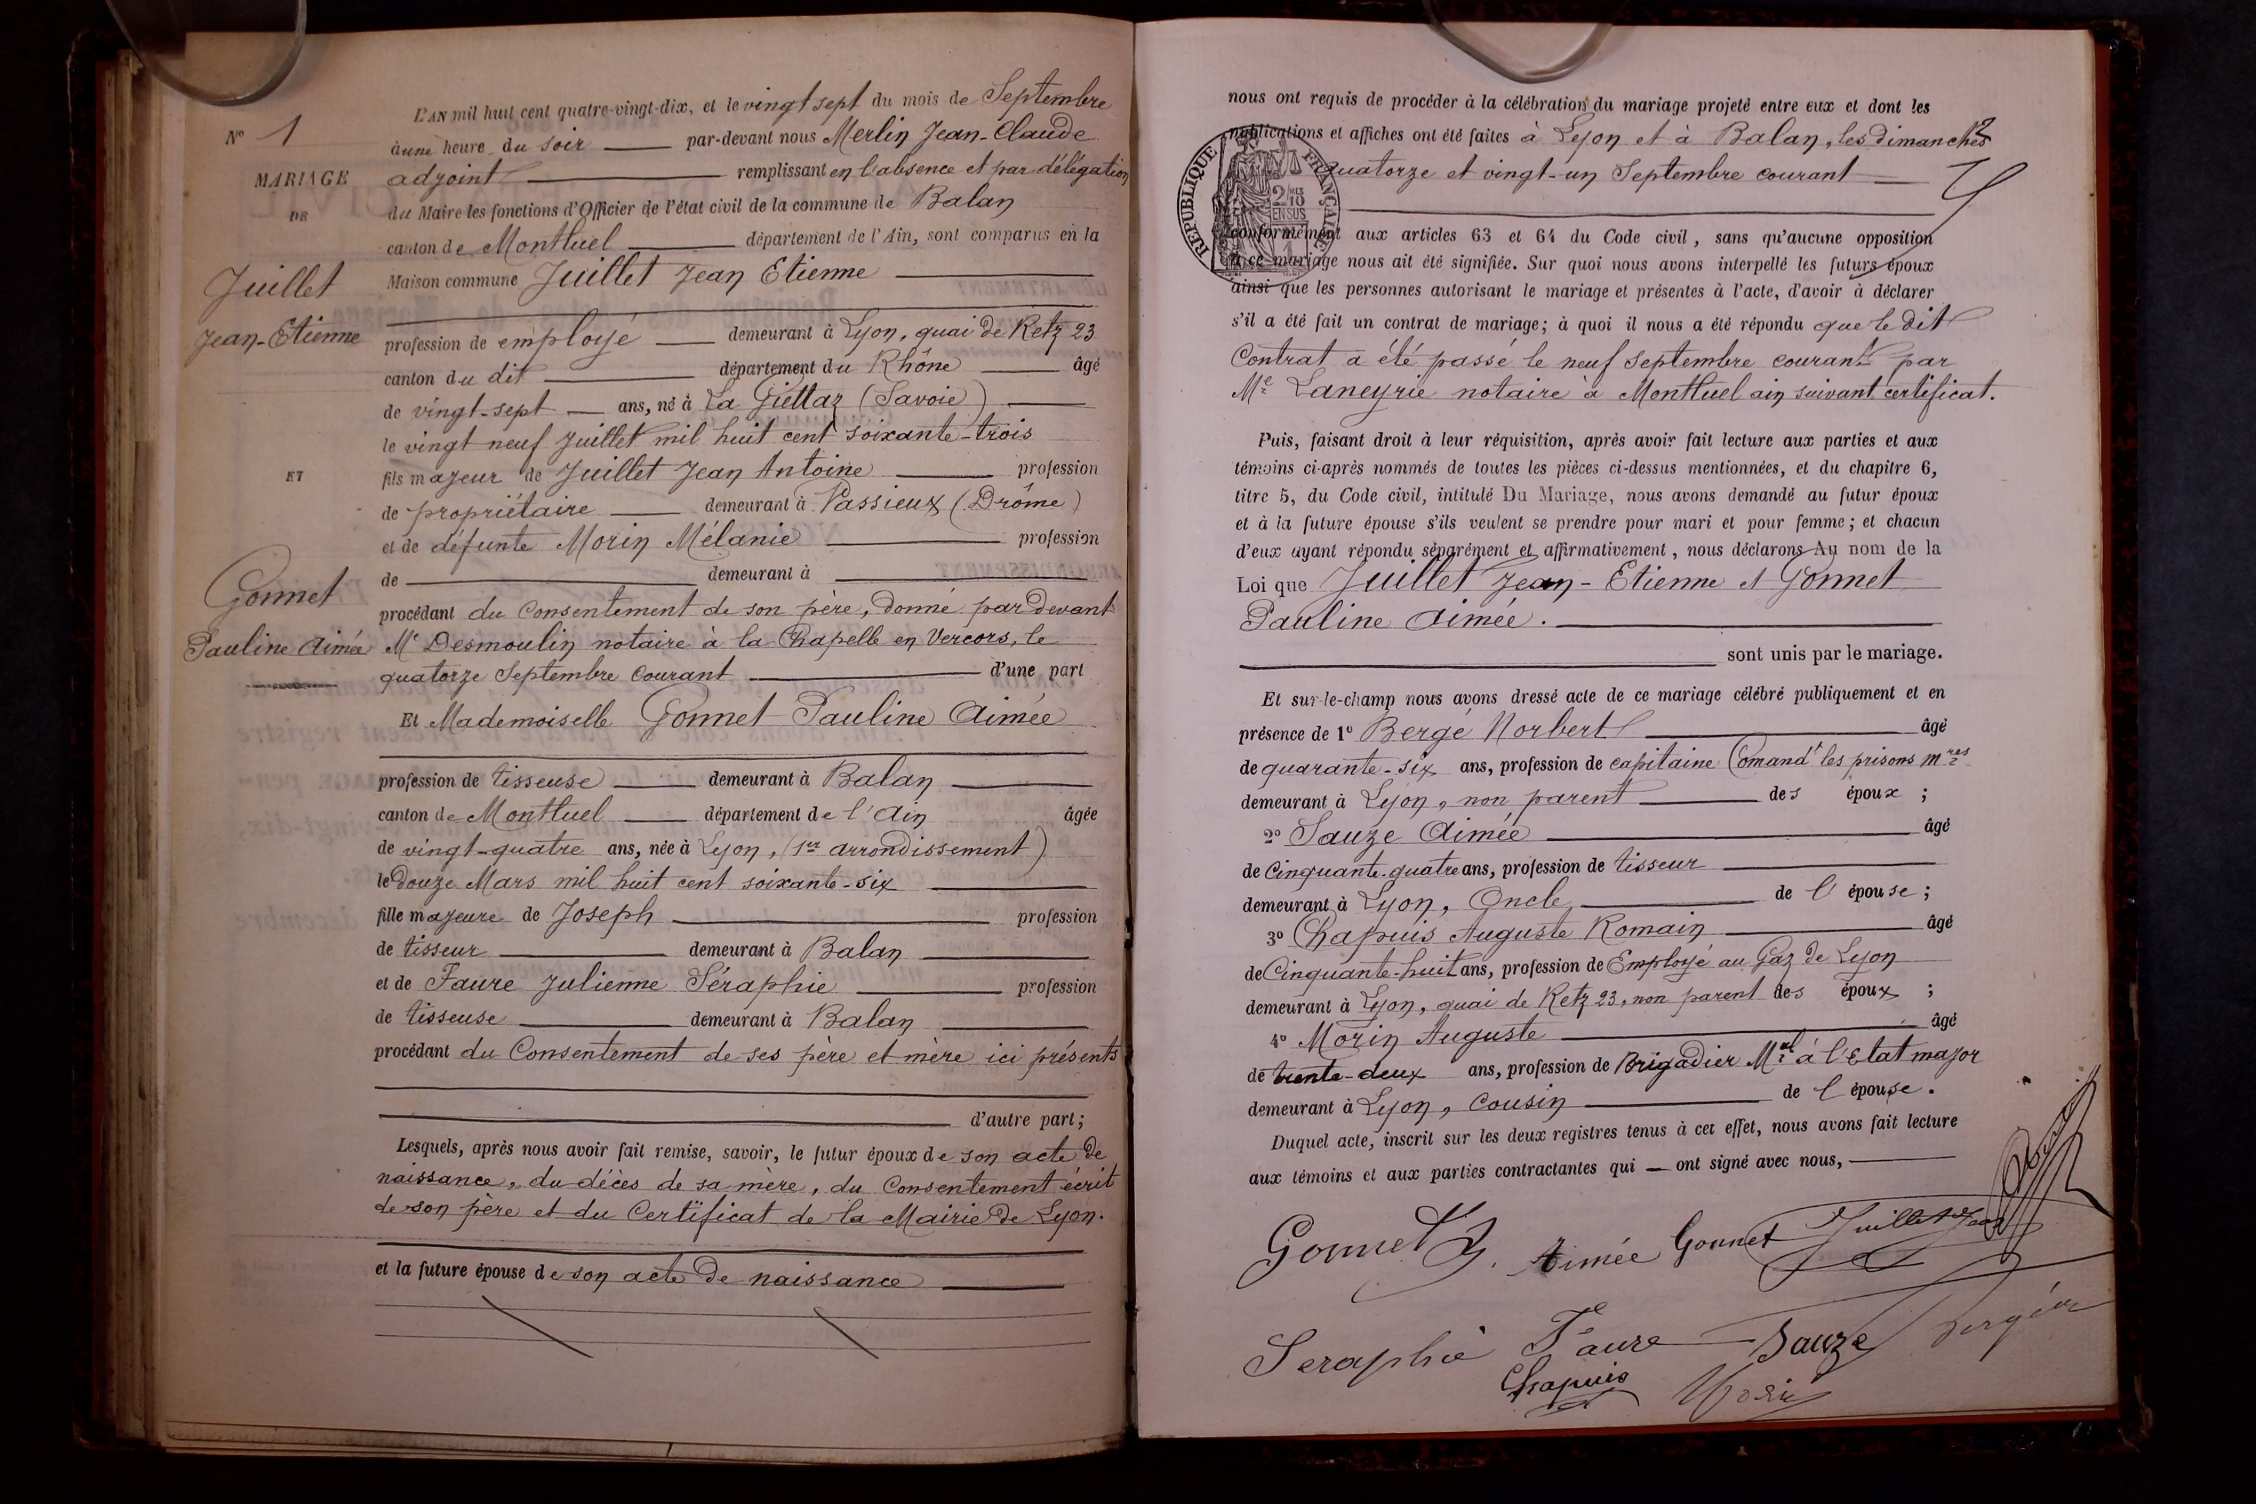 N° 1
MARIAGE
DE
Juillet
Jean-Etienne
ET
Gonnet
Pauline Aimée
L'AN mil huit cent quatre-vingt-dix, et le vingt sept du mois de Septembre
à une heure du soir par-devant nous Merlin Jean-Claude
adjoint remplissant en l'absence et par délégation
du Maire les fonctions d'Officier de l'état civil de la commune de Balan
canton de Montluel département de l'Ain, sont comparus en la
Maison commune Juillet Jean Etienne
profession de employé demeurant à Lyon, quai de Retz 23
canton du dit département du Rhône âgé
de vingt-sept ans, né à La Giettaz (Savoie)
le vingt neuf Juillet mil huit cent soixante-trois
fils majeur de Juillet Jean Antoine profession
de propriétaire demeurant à Vassieux (Drôme)
et de défunte Morin Mélanie profession
de demeurant à
procédant du Consentement de son père, donné par devant
Me Desmoulin notaire à la Chapelle en Vercors, le
quatorze Septembre courant d'une part
Et Mademoiselle Gonnet Pauline Aimée
profession de tisseuse demeurant à Balan
canton de Montluel département de l'Ain âgée
de vingt-quatre ans, née à Lyon, (1er arrondissement)
le Douze Mars mil huit cent soixante-six
fille majeure de Joseph profession
de tisseur demeurant à Balan
et de Faure Julienne Séraphie profession
de tisseuse demeurant à Balan
procédant du Consentement de ses père et mère ici présents
d'autre part;
Lesquels, après nous avoir fait remise, savoir, le futur époux de son acte de
naissance, du décès de sa mère, du Consentement écrit
de son père et du Certificat de la Mairie de Lyon.
et la future épouse de son acte de naissance
nous ont requis de procéder à la célébration du mariage projeté entre eux et dont les
publications et affiches ont été faites à Lyon et à Balan, les dimanches
quatorze et vingt-un Septembre courant
RÉPUBLIQUE FRANÇAISE
conformément aux articles 63 et 64 du Code civil, sans qu'aucune opposition
à ce mariage nous ait été signifiée. Sur quoi nous avons interpellé les futurs époux
ainsi que les personnes autorisant le mariage et présentes à l'acte, d'avoir à déclarer
s'il a été fait un contrat de mariage; à quoi il nous a été répondu que le dit
Contrat a été passé le neuf septembre courant par
Me Laneyrie notaire à Montluel ain suivant certificat.
Puis, faisant droit à leur réquisition, après avoir fait lecture aux parties et aux
témoins ci-après nommés de toutes les pièces ci-dessus mentionnées, et du chapitre 6,
titre 5, du Code civil, intitulé Du Mariage, nous avons demandé au futur époux
et à la future épouse s'ils veulent se prendre pour mari et pour femme; et chacun
d'eux ayant répondu séparément et affirmativement, nous déclarons Au nom de la
Loi que Juillet Jean-Etienne et Gonnet
Pauline Aimée.
sont unis par le mariage.
Et sur-le-champ nous avons dressé acte de ce mariage célébré publiquement et en
présence de 1° Bergé Norbert âgé
de quarante-six ans, profession de capitaine Comandt les prisons mres
demeurant à Lyon, non parent des époux;
2° Sauze Aimée âgé
de Cinquante-quatre ans, profession de tisseur
demeurant à Lyon, Oncle de l'épouse;
3° Chapuis Auguste Romain âgé
de Cinquante-huit ans, profession de Employé au Gaz de Lyon
demeurant à Lyon, quai de Retz 23, non parent des époux;
4° Morin Auguste âgé
de trente-deux ans, profession de Brigadier Mal à l'Etat major
demeurant à Lyon, Cousin de l'épouse.
Duquel acte, inscrit sur les deux registres tenus à cet effet, nous avons fait lecture
aux témoins et aux parties contractantes qui ont signé avec nous,
Gonnet J. Aimée Gonnet Juillet Jean
Seraphie Faure Sauze Bergé
Chapuis Morin